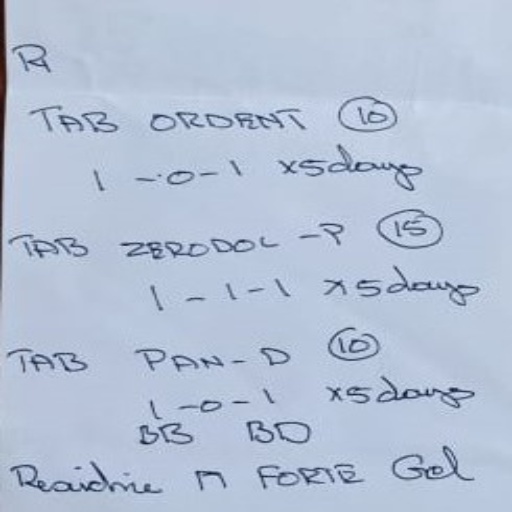 Rx
TAB ORDENT 10
1 - 0 - 1 x5days
TAB ZERODOL - P 15
1 - 1 - 1 x5days
TAB PAN - D 10
1 - 0 - 1 x5days
BB BD
FORTE Gel